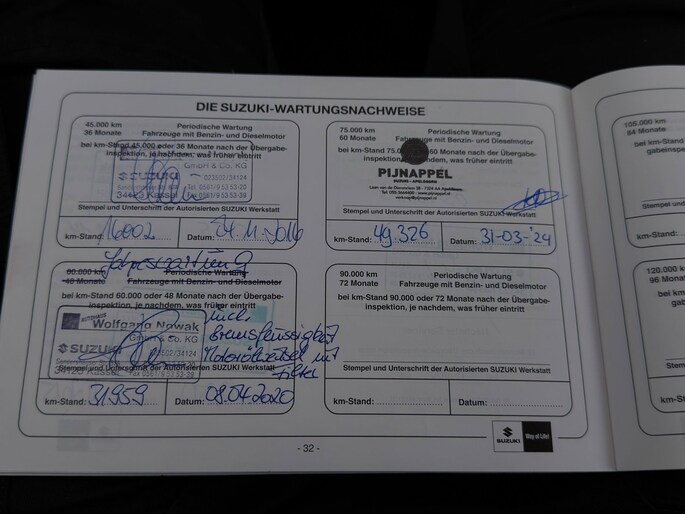 DIE SUZUKI-WARTUNGSNACHWEISE
45.000 km
36 Monate
Periodische Wartung
Fahrzeuge mit Benzin- und Dieselmotor
bei km-Stand 45.000 oder 36 Monate nach der Übergabe-
inspektion, je nachdem, was früher eintritt
GmbH & Co. KG
SUZUKI
34123 Kassel
Stempel und Unterschrift der Autorisierten SUZUKI Werkstatt
km-Stand: 16002 Datum: 24.11.2016
Jahreswartung
60.000 km
48 Monate
Periodische Wartung
Fahrzeuge mit Benzin- und Dieselmotor
bei km-Stand 60.000 oder 48 Monate nach der Übergabe-
inspektion, je nachdem, was früher eintritt
Wolfgang Nowak
GmbH & Co. KG
SUZUKI
inkl.
Bremsflüssigkeit
Motorölwechsel mit
Filter
Stempel und Unterschrift der Autorisierten SUZUKI Werkstatt
km-Stand: 31959 Datum: 08.04.2020
75.000 km
60 Monate
Periodische Wartung
Fahrzeuge mit Benzin- und Dieselmotor
bei km-Stand 75.0 60 Monate nach der Übergabe-
inspektion, je nachdem, was früher eintritt
PIJNAPPEL
Stempel und Unterschrift der Autorisierten SUZUKI Werkstatt
km-Stand: 49.326 Datum: 31-03-'24
90.000 km
72 Monate
Periodische Wartung
Fahrzeuge mit Benzin- und Dieselmotor
bei km-Stand 90.000 oder 72 Monate nach der Übergabe-
inspektion, je nachdem, was früher eintritt
Stempel und Unterschrift der Autorisierten SUZUKI Werkstatt
km-Stand: Datum:
SUZUKI
Way of Life!
- 32 -
105.000 km
84 Monate
bei km-
gabeinspe
Stempel und
km-Stand:
120.000 km
96 Monate
bei km
gab
Stempel
km-Sta